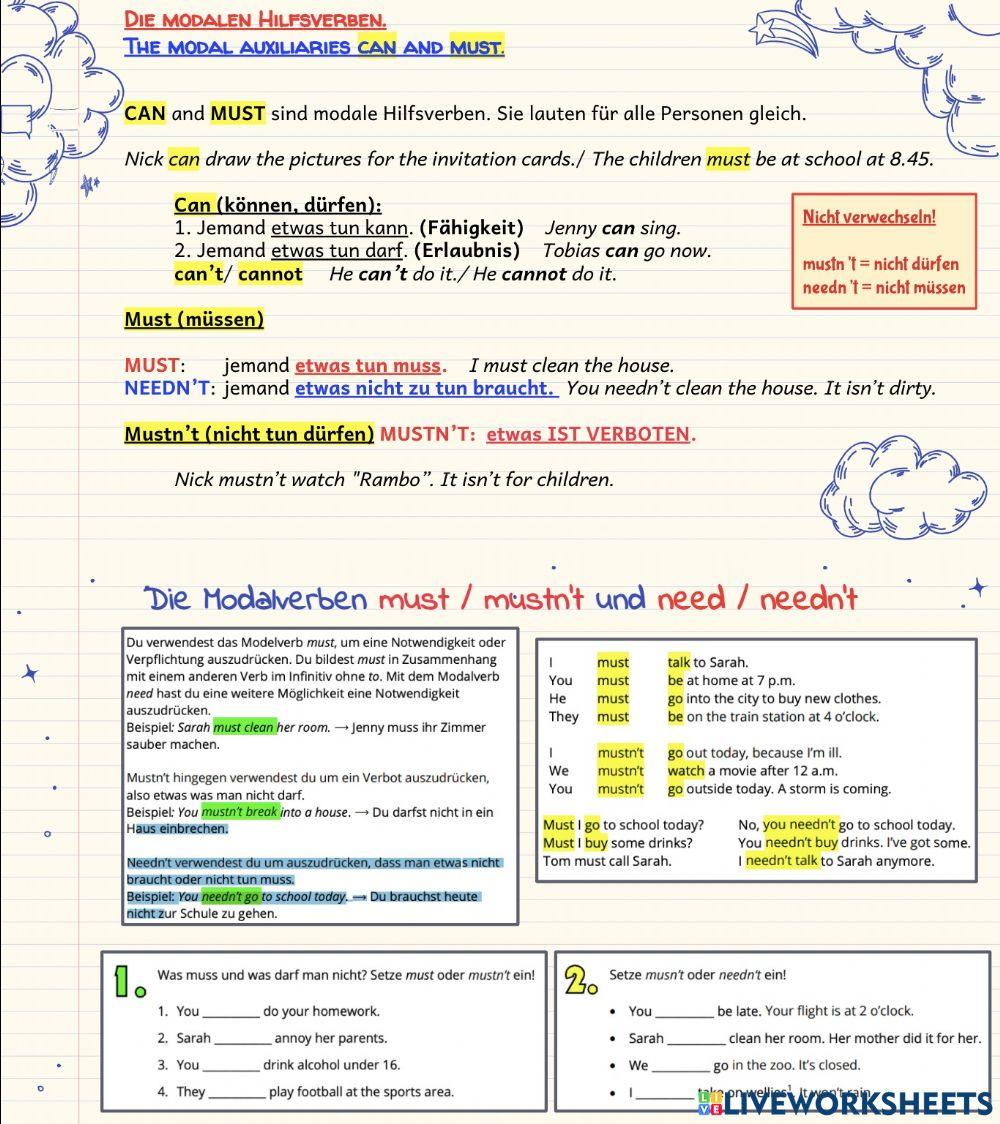 Die modalen Hilfsverben.
The modal auxiliaries can and must.
CAN and MUST sind modale Hilfsverben. Sie lauten für alle Personen gleich.
Nick can draw the pictures for the invitation cards./ The children must be at school at 8.45.
Can (können, dürfen):
1. Jemand etwas tun kann. (Fähigkeit) Jenny can sing.
2. Jemand etwas tun darf. (Erlaubnis) Tobias can go now.
can't/ cannot He can't do it./ He cannot do it.
Nicht verwechseln!
mustn't = nicht dürfen
needn't = nicht müssen
Must (müssen)
MUST: jemand etwas tun muss. I must clean the house.
NEEDN'T: jemand etwas nicht zu tun braucht. You needn't clean the house. It isn't dirty.
Mustn't (nicht tun dürfen) MUSTN'T: etwas IST VERBOTEN.
Nick mustn't watch "Rambo”. It isn't for children.
Die Modalverben must / mustn't und need / needn't
Du verwendest das Modelverb must, um eine Notwendigkeit oder
Verpflichtung auszudrücken. Du bildest must in Zusammenhang
mit einem anderen Verb im Infinitiv ohne to. Mit dem Modalverb
need hast du eine weitere Möglichkeit eine Notwendigkeit
auszudrücken.
Beispiel: Sarah must clean her room. → Jenny muss ihr Zimmer
sauber machen.
Mustn't hingegen verwendest du um ein Verbot auszudrücken,
also etwas was man nicht darf.
Beispiel: You mustn't break into a house. → Du darfst nicht in ein
Haus einbrechen.
Needn't verwendest du um auszudrücken, dass man etwas nicht
braucht oder nicht tun muss.
Beispiel: You needn't go to school today. → Du brauchst heute
nicht zur Schule zu gehen.
I must talk to Sarah.
You must be at home at 7 p.m.
He must go into the city to buy new clothes.
They must be on the train station at 4 o'clock.
I mustn't go out today, because I'm ill.
We mustn't watch a movie after 12 a.m.
You mustn't go outside today. A storm is coming.
Must I go to school today? No, you needn't go to school today.
Must I buy some drinks? You needn't buy drinks. I've got some.
Tom must call Sarah. I needn't talk to Sarah anymore.
1. Was muss und was darf man nicht? Setze must oder mustn't ein!
1. You ________ do your homework.
2. Sarah ________ annoy her parents.
3. You ________ drink alcohol under 16.
4. They ________ play football at the sports area.
2. Setze musn't oder needn't ein!
• You ________ be late. Your flight is at 2 o'clock.
• Sarah ________ clean her room. Her mother did it for her.
• We ________ go in the zoo. It's closed.
• I ________ take on wellies¹. It won't rain.
LIVEWORKSHEETS